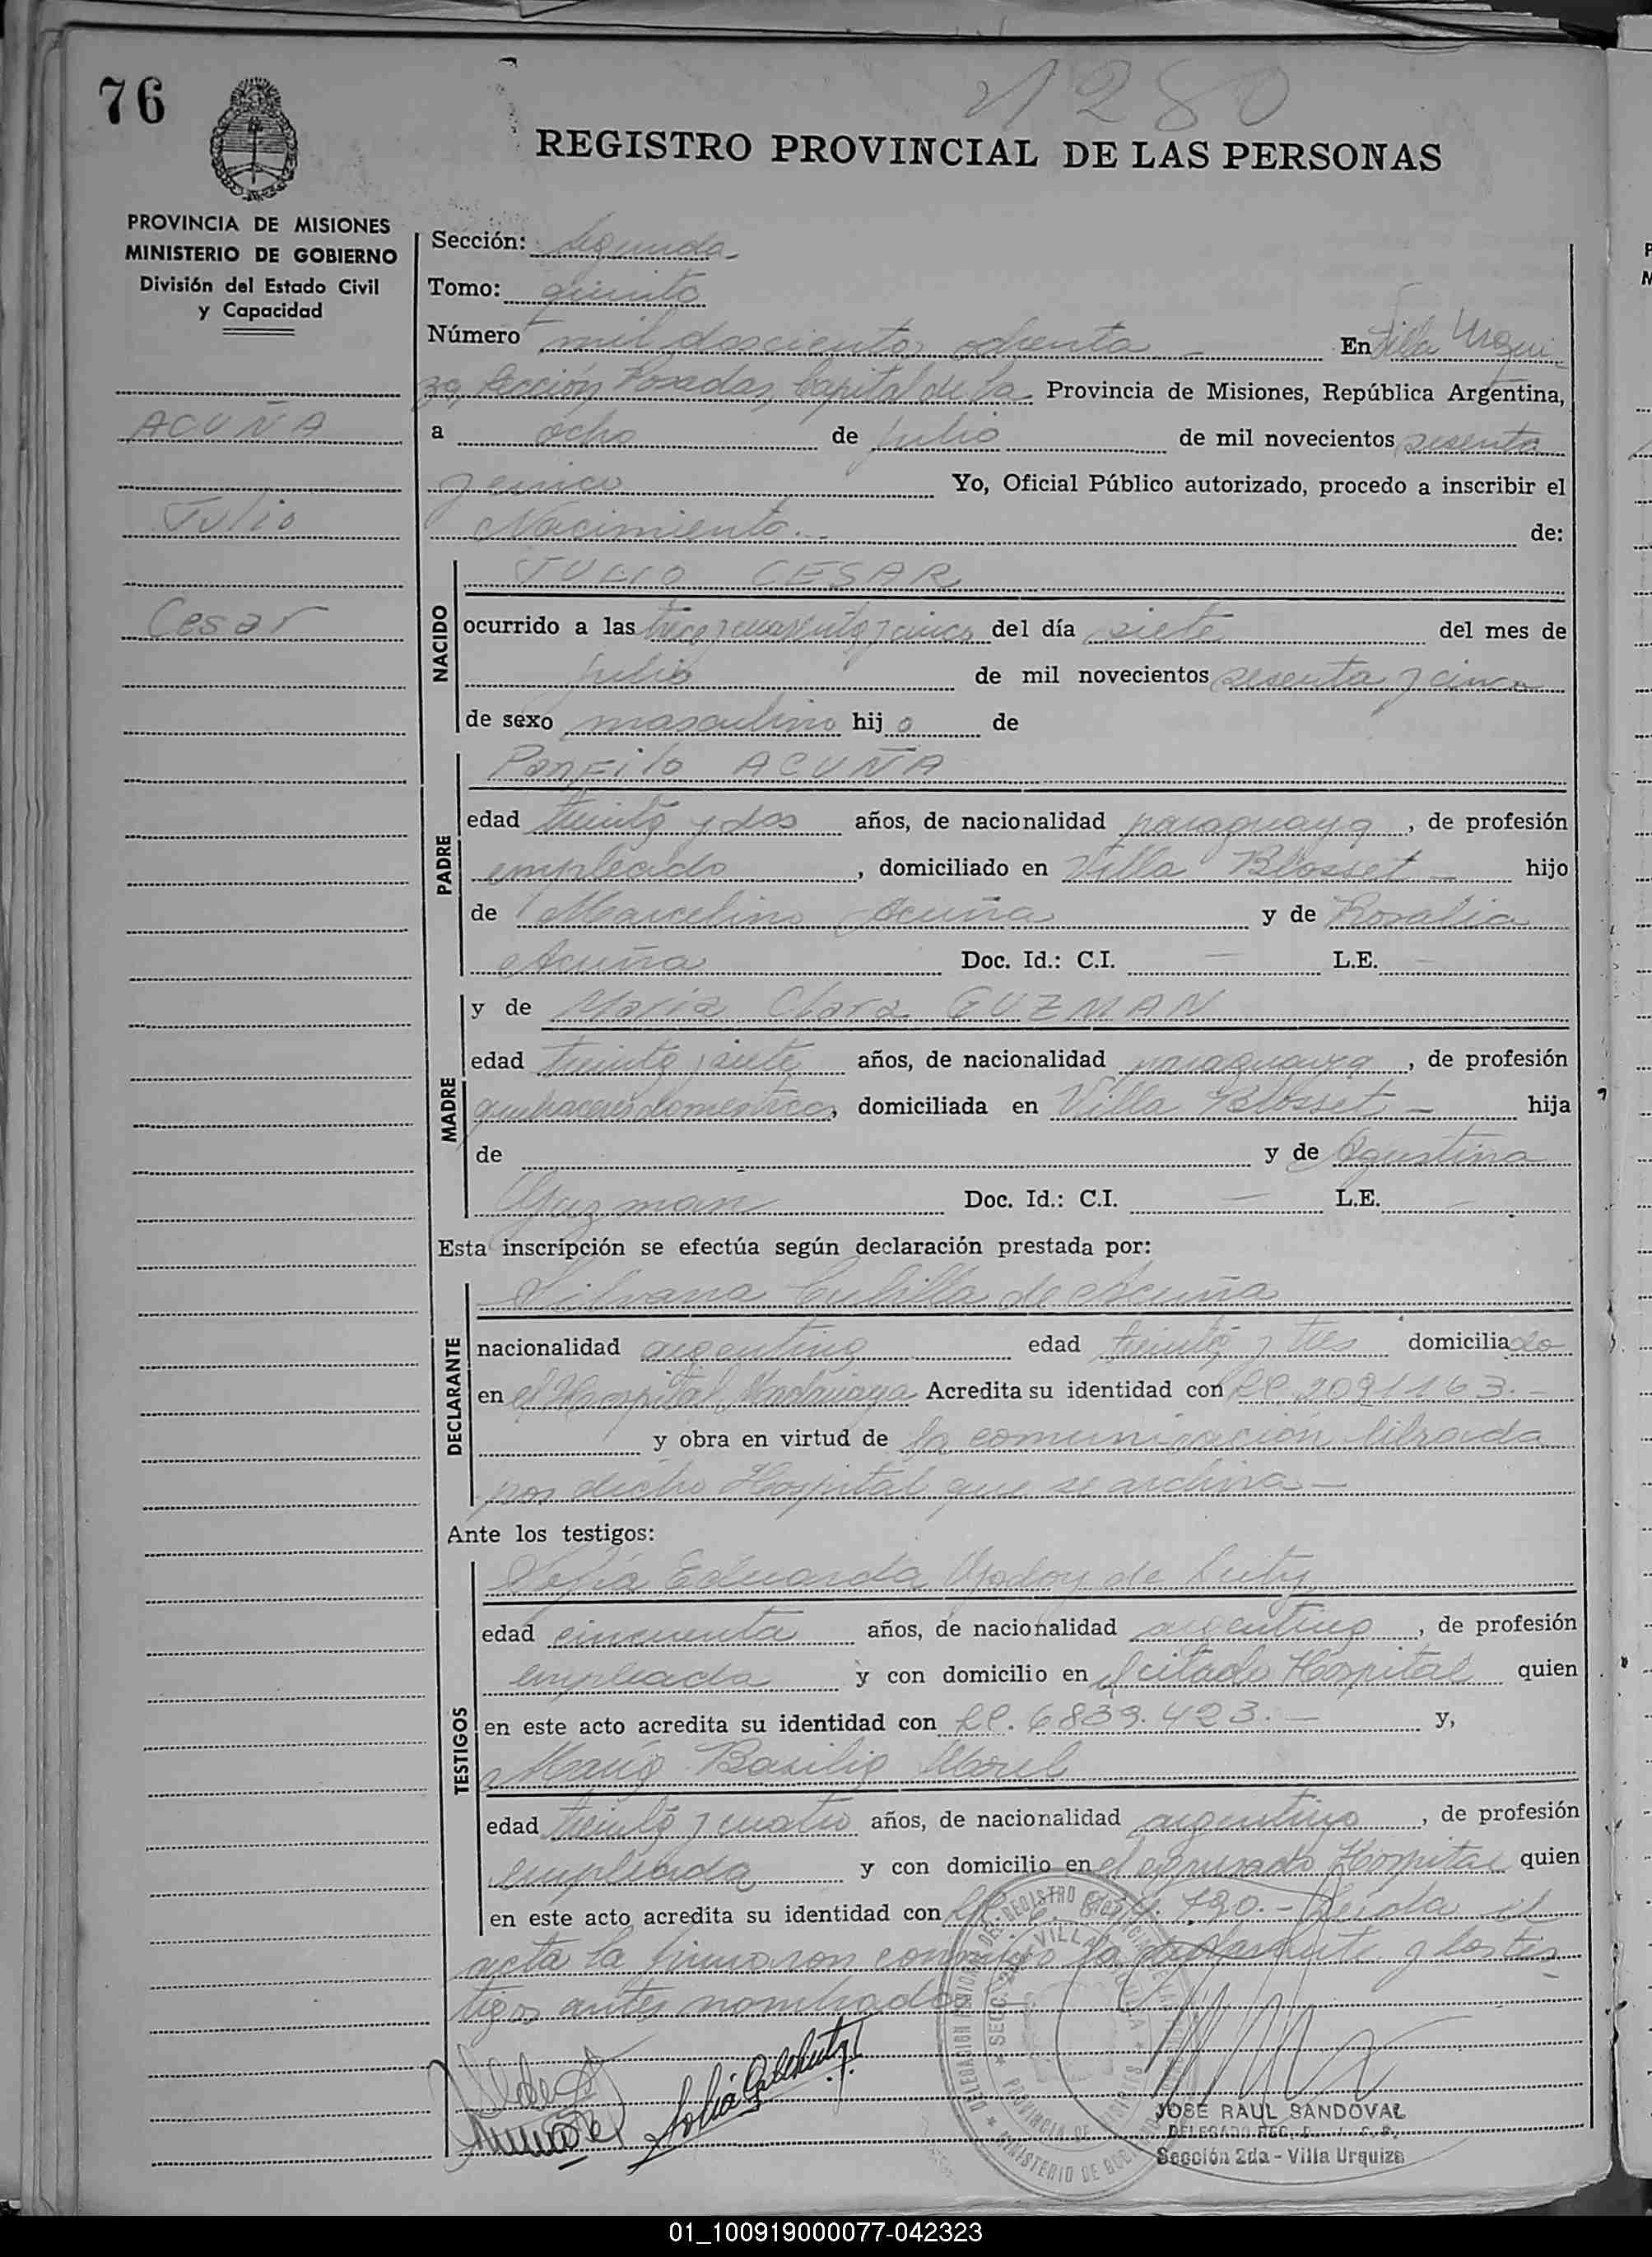 76
1280
REGISTRO PROVINCIAL DE LAS PERSONAS
PROVINCIA DE MISIONES
MINISTERIO DE GOBIERNO
División del Estado Civil
y Capacidad
ACUÑA
Julio
Cesar
Sección: Segunda
Tomo: quinto
Número mil doscientos ochenta - En Villa Urqui
za, Sección Posadas, Capital de la Provincia de Misiones, República Argentina,
a ocho de julio de mil novecientos sesenta
y cinco Yo, Oficial Público autorizado, procedo a inscribir el
Nacimiento de:
NACIDO
JULIO CESAR
ocurrido a las trece y cuarenta y cinco del día siete del mes de
julio de mil novecientos sesenta y cinco
de sexo masculino hijo de
PADRE
Panfilo ACUÑA
edad treinta y dos años, de nacionalidad paraguaya, de profesión
empleado, domiciliado en Villa Blosset - hijo
de Marcelino Acuña y de Rosalia
Acuña Doc. Id.: C.I. - L.E. -
MADRE
y de Maria Clara GUZMAN
edad treinta y siete años, de nacionalidad paraguaya, de profesión
quehaceres domesticos, domiciliada en Villa Blosset - hija
de y de Agustina
Guzman Doc. Id.: C.I. - L.E. -
Esta inscripción se efectúa según declaración prestada por:
DECLARANTE
Silvana Cubilla de Acuña
nacionalidad argentina edad treinta y tres domiciliado
en el Hospital Madariaga Acredita su identidad con LC. 2091163.-
y obra en virtud de la comunicación librada
por dicho Hospital que se archiva -
Ante los testigos:
TESTIGOS
Sofia Eduarda Godoy de
edad cincuenta años, de nacionalidad argentina, de profesión
empleada y con domicilio en el citado Hospital quien
en este acto acredita su identidad con LC. 6839.423.- y,
Maria Basilia Morel
edad treinta y cuatro años, de nacionalidad argentina, de profesión
empleada y con domicilio en el expresado Hospital quien
en este acto acredita su identidad con 790.- Leida el
acta la firmaron conmigo la declarante y los tes
tigos antes nombrados
JOSE RAUL SANDOVAL
Sección 2da - Villa Urquiza
01_100919000077-042323